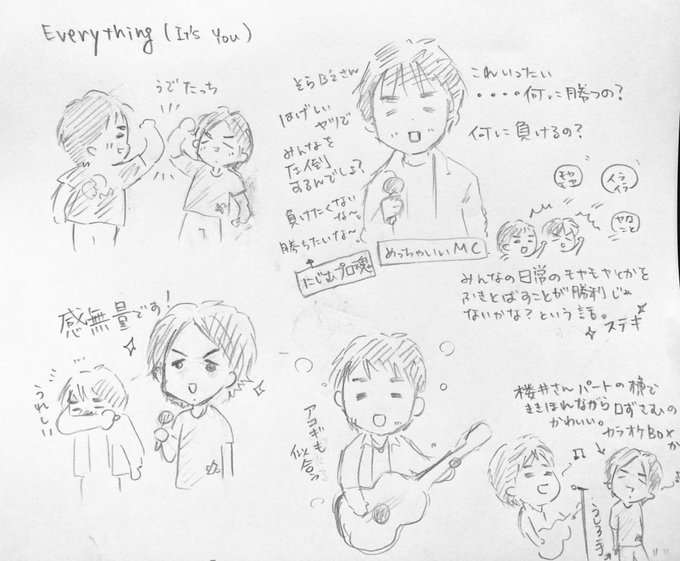 Everything (It's You)
うでたっち
そらB'zさん
はげしい
ヤツで
みんなを
圧倒
するんでしょ?
負けたくない
な〜。
勝ちたいな〜。
にじむプロ魂。
めっちゃいいMC
これいったい
・・・・何に勝つの?
何に負けるの?
モヤ
モヤ
イラ
イラ
ヤな
こと
みんなの日常のモヤモヤとかを
ふきとばすことが勝利じゃ
ないかな?という話。
ステキ
感無量です!
うれしい
アコギも
似合う
桜井さんパートの横で
ききほれながら口ずさむの
かわいい。
カラオケBOXか
うしろ手